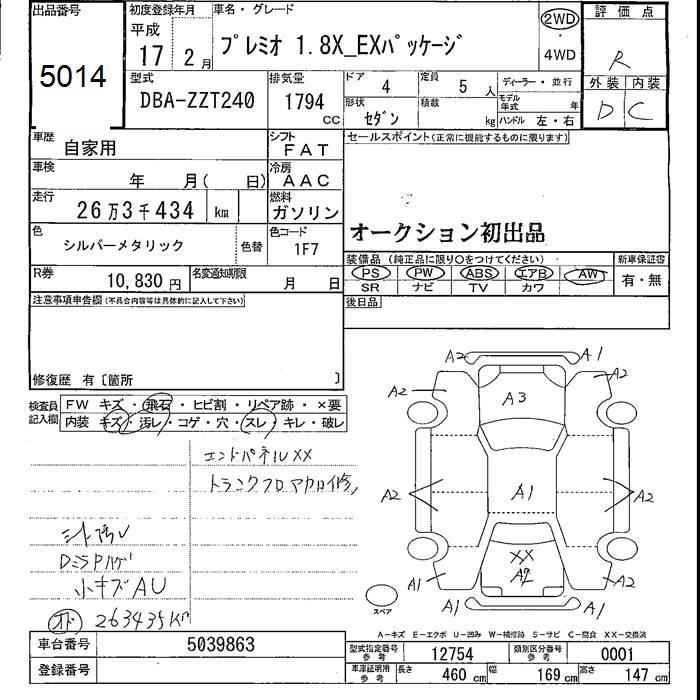 出品番号
5014
初度登録年月
平成
17 年 2 月
車名・グレード
プレミオ 1.8X_EXパッケージ
2WD
・
4WD
評価点
R
外装 内装
D C
型式
DBA-ZZT240
排気量
1794 cc
ドア 4
定員 5 人
ディーラー・並行
形状 セダン
積載 kg
モデル年式 年
ハンドル 左・右
車歴 自家用
シフト FAT
車検 年 月( 日)
冷房 AAC
走行 26万3千434 km
燃料 ガソリン
色 シルバーメタリック
色替
色コード 1F7
R券 10,830 円
名変通知期限 月 日
セールスポイント(正常に機能するものに限ります)
オークション初出品
装備品 (純正品に限り○をつけてください)
新車保証書
PS PW ABS エアB AW
SR ナビ TV カワ
有・無
後日品
注意事項申告欄(不具合内容等は具体的に記入して下さい)
修復歴 有〔箇所 〕
検査員記入欄
FW キズ・飛石・ヒビ割・リペア跡・×要
内装 キズ・汚レ・コゲ・穴・スレ・キレ・破レ
エンドパネルXX
トランクフロアカロイ修
シート汚レ
DミラPハゲ
小キズAU
オド 263435Km
A2 A1
A2 A2
A3
A2 A1 A2
XX
A2
A1 A2
A1 A1
スペア
A-キズ E-エクボ U-凹み W-補修跡 S-サビ C-腐食 XX-交換済
車台番号 5039863
登録番号
型式指定番号 参考 12754
類別区分番号 参考 0001
車庫証明用 参考 長さ 460 cm 幅 169 cm 高さ 147 cm